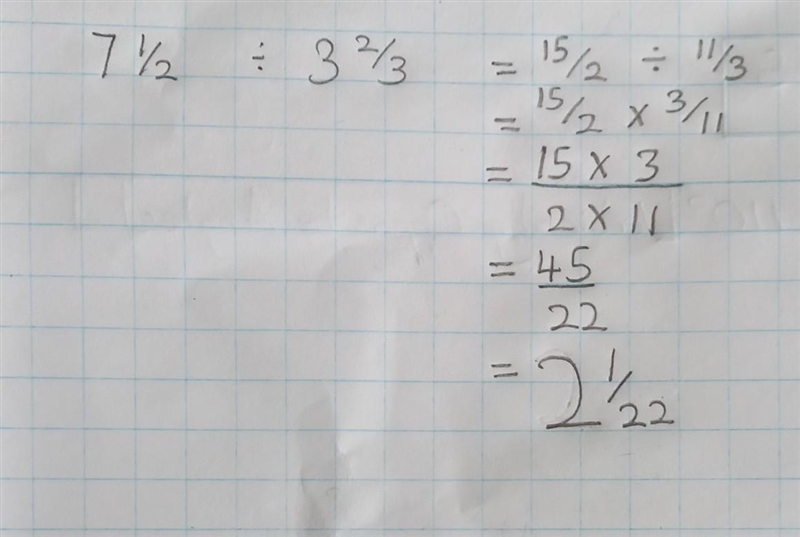 7 1/2 ÷ 3 2/3 = 15/2 ÷ 11/3
= 15/2 × 3/11
= 15 × 3
2 × 11
= 45
22
= 2 1/22